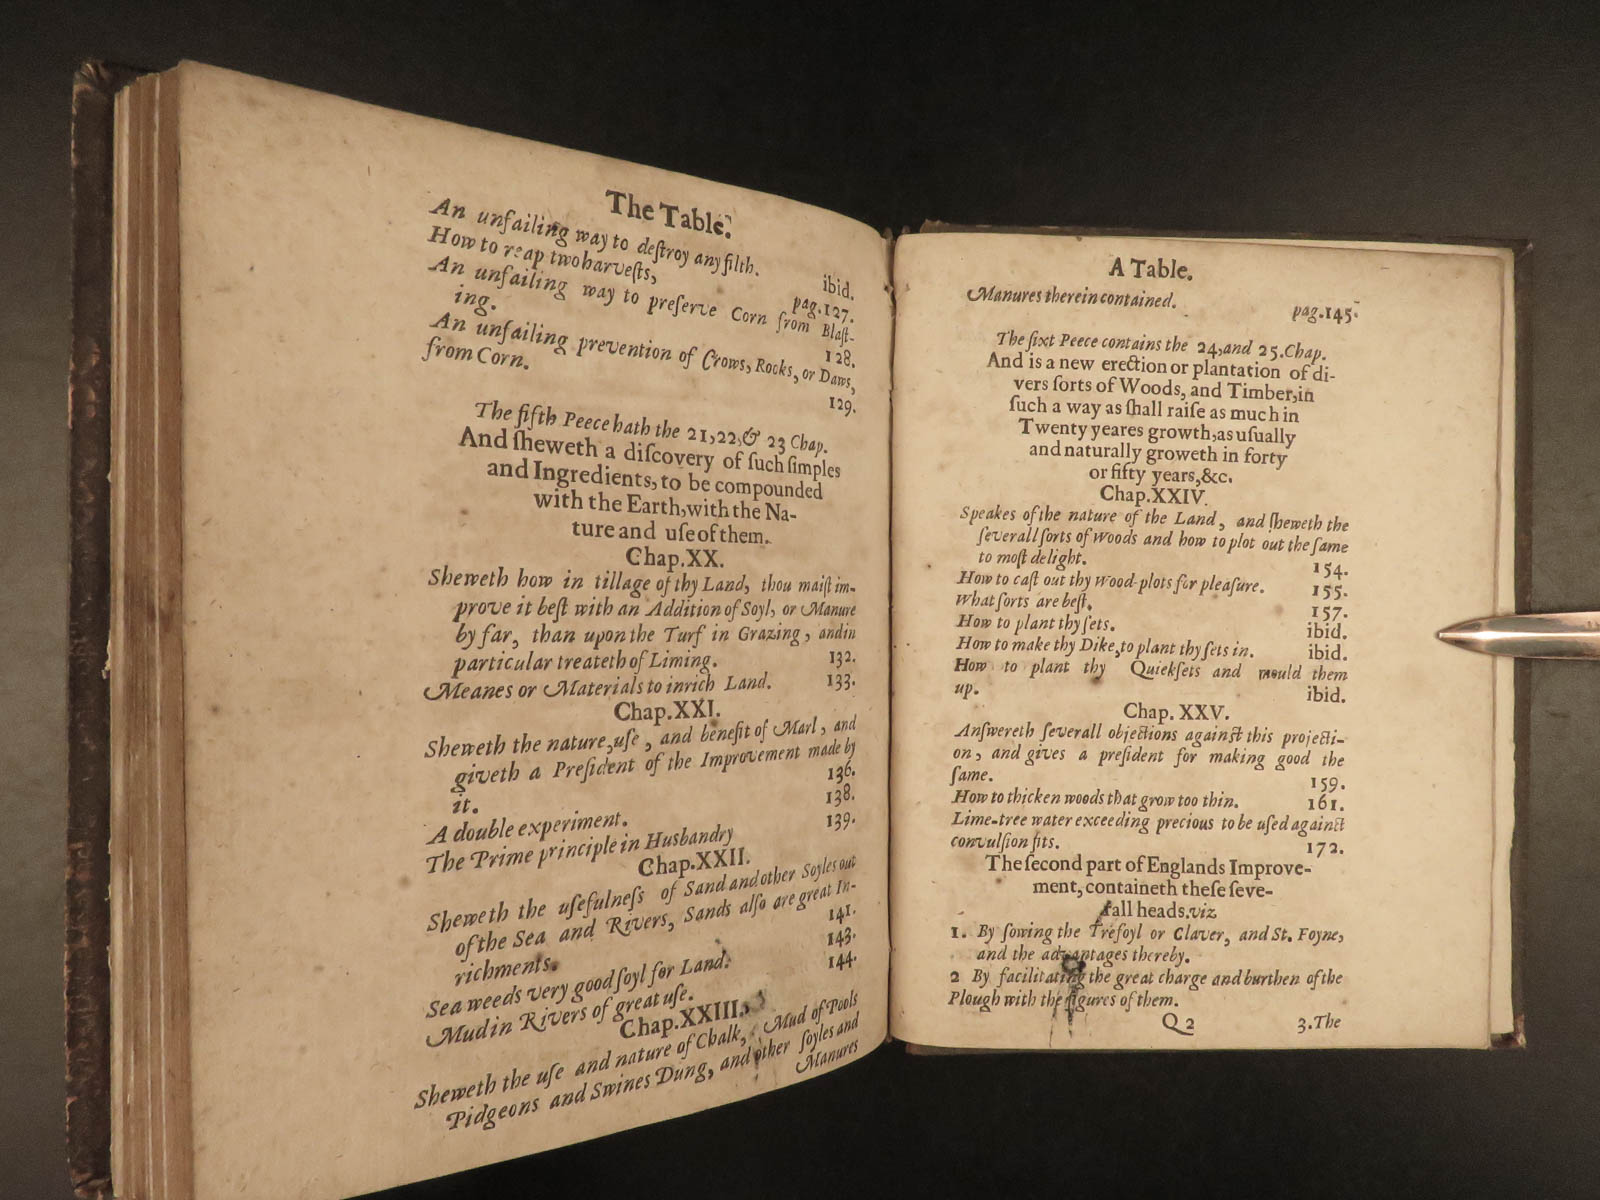 The Table.
An unfailing way to deſtroy any filth. ibid.
How to reap two harveſts, pag.127.
An unfailing way to preſerve Corn from Blaſt-
ing. 128.
An unfailing prevention of Crows, Rocks, or Daws,
from Corn. 129.
The fifth Peece hath the 21,22,& 23 Chap.
And ſheweth a diſcovery of ſuch ſimples
and Ingredients, to be compounded
with the Earth, with the Na-
ture and uſe of them.
Chap.XX.
Sheweth how in tillage of thy Land, thou maiſt im-
prove it beſt with an Addition of Soyl, or Manure
by far, than upon the Turf in Grazing, and in
particular treateth of Liming. 132.
Meanes or Materials to inrich Land. 133.
Chap.XXI.
Sheweth the nature, uſe, and benefit of Marl, and
giveth a Preſident of the Improvement made by
it. 136.
A double experiment. 138.
The Prime principle in Husbandry 139.
Chap.XXII.
Sheweth the uſefulneſs of Sand and other Soyles out
of the Sea and Rivers, Sands alſo are great In-
richments. 141.
Sea weeds very good ſoyl for Land. 143.
Mud in Rivers of great uſe. 144.
Chap.XXIII.
Sheweth the uſe and nature of Chalk, Mud of Pools
Pidgeons and Swines Dung, and other ſoyles and
Manures
A Table.
Manures therein contained. pag.145.
The ſixt Peece contains the 24, and 25.Chap.
And is a new erection or plantation of di-
vers ſorts of Woods, and Timber, in
ſuch a way as ſhall raiſe as much in
Twenty yeares growth, as uſually
and naturally groweth in forty
or fifty years,&c.
Chap.XXIV.
Speakes of the nature of the Land, and ſheweth the
ſeverall ſorts of Woods and how to plot out the ſame
to moſt delight. 154.
How to caſt out thy wood-plots for pleaſure. 155.
What ſorts are beſt. 157.
How to plant thy ſets. ibid.
How to make thy Dike, to plant thy ſets in. ibid.
How to plant thy Quickſets and mould them
up. ibid.
Chap. XXV.
Anſwereth ſeverall objections againſt this projecti-
on, and gives a preſident for making good the
ſame. 159.
How to thicken woods that grow too thin. 161.
Lime-tree water exceeding precious to be uſed againſt
convulſion fits. 172.
The ſecond part of Englands Improve-
ment, containeth theſe ſeve-
rall heads.viz
1. By ſowing the Trefoyl or Claver, and St. Foyne,
and the advantages thereby.
2 By facilitating the great charge and burthen of the
Plough with the figures of them.
Q 2 3.The